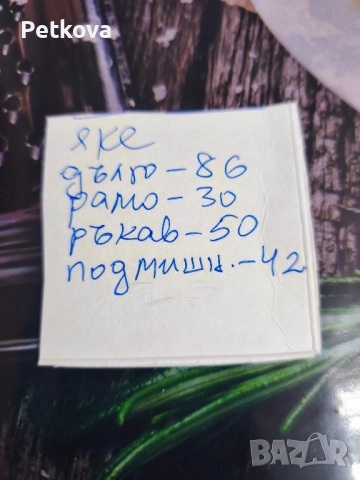 Petkova
яке
дълго - 86
рамо - 30
ръкав - 50
подмишн. - 42
BAZAR